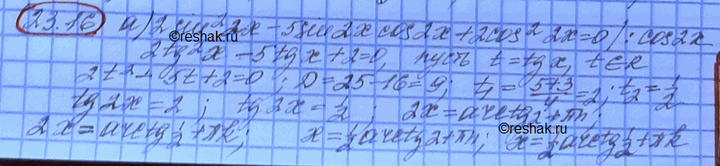 23.16 а) 2sin²2x - 5sin2x cos2x + 2cos²2x = 0 /: cos2x
2tg²x - 5tgx + 2 = 0, пусть t = tgx, t ∈ R
2t² - 5t + 2 = 0; D = 25 - 16 = 9; t₁ = (5+3)/4 = 2; t₂ = 1/2
tg2x = 2; tg2x = 1/2; 2x = arctg2 + πn;
2x = arctg 1/2 + πk; x = 1/2 arctg2 + πn; x = 1/2 arctg 1/2 + πk